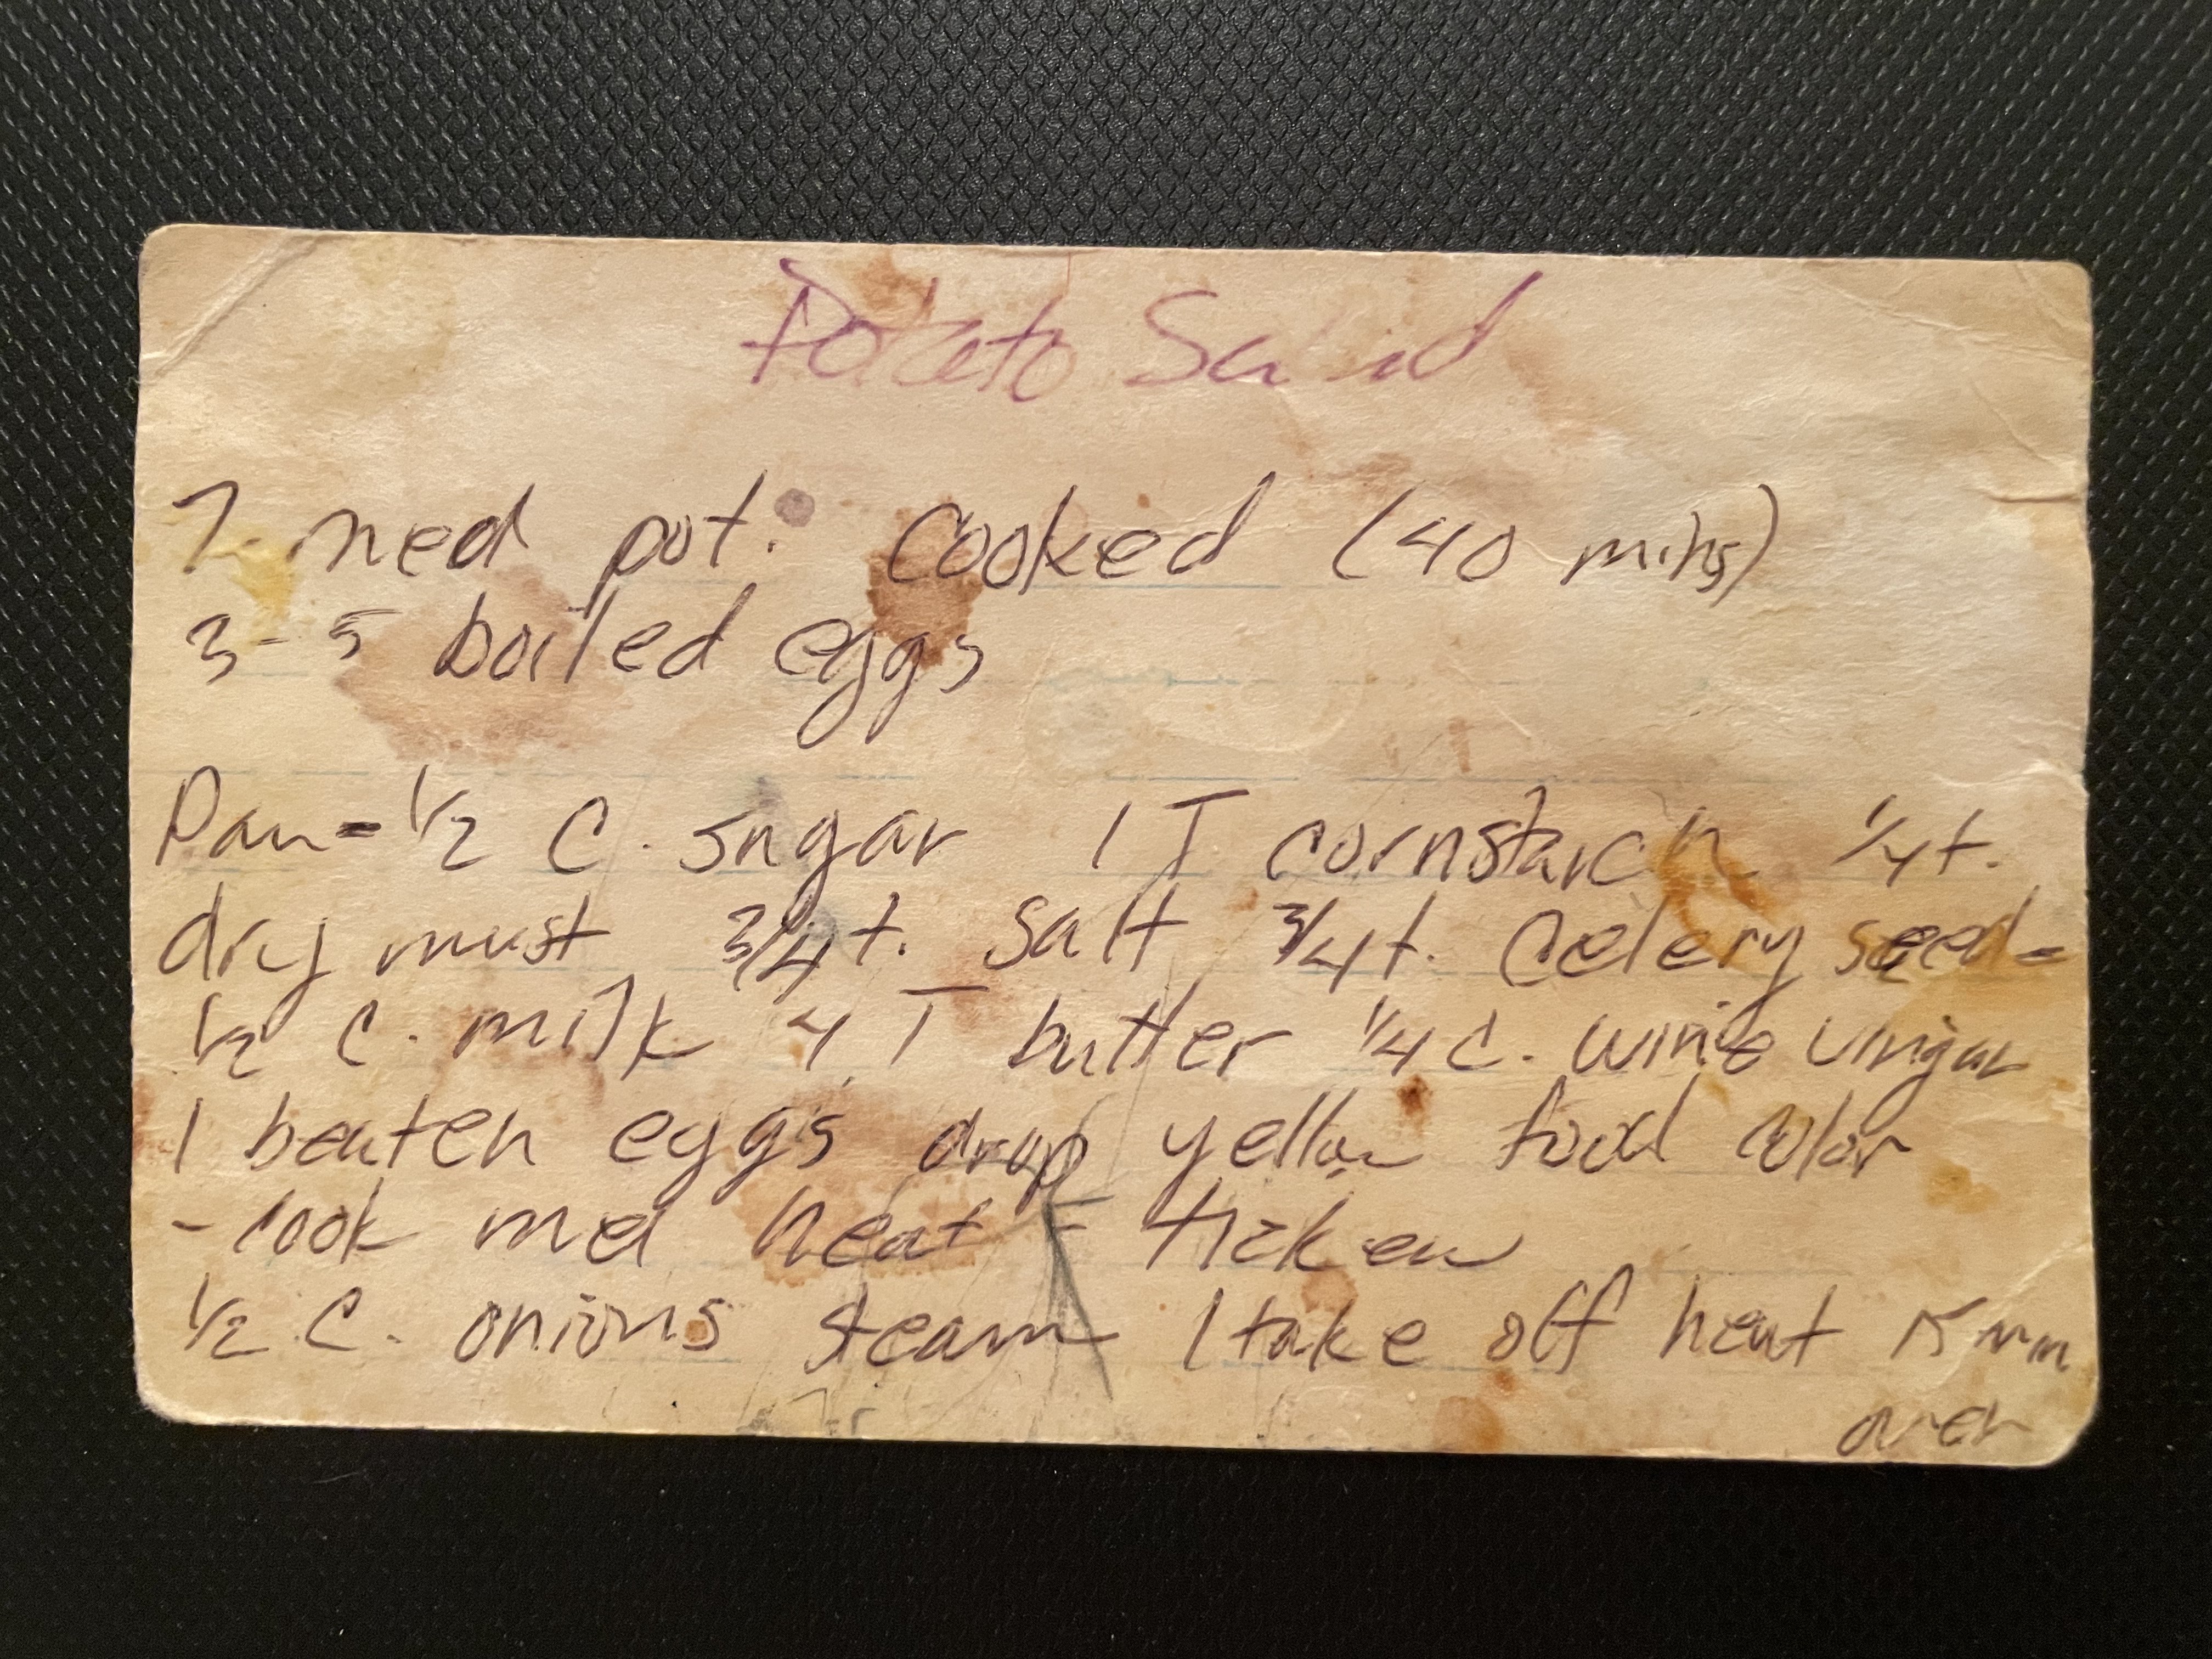 Potato Salad
7 med pot. cooked (40 mins)
3-5 boiled eggs
Pan = 1/2 C. sugar 1 T cornstarch 1/4 t.
dry must 3/4 t. salt 3/4 t. Celery seed -
1/2 C. milk 4 T butter 1/4 C. wine vingar
1 beaten eggs drop yellow food color
- cook med heat - ticken
1/2 C. onions steam take off heat 5 min
over